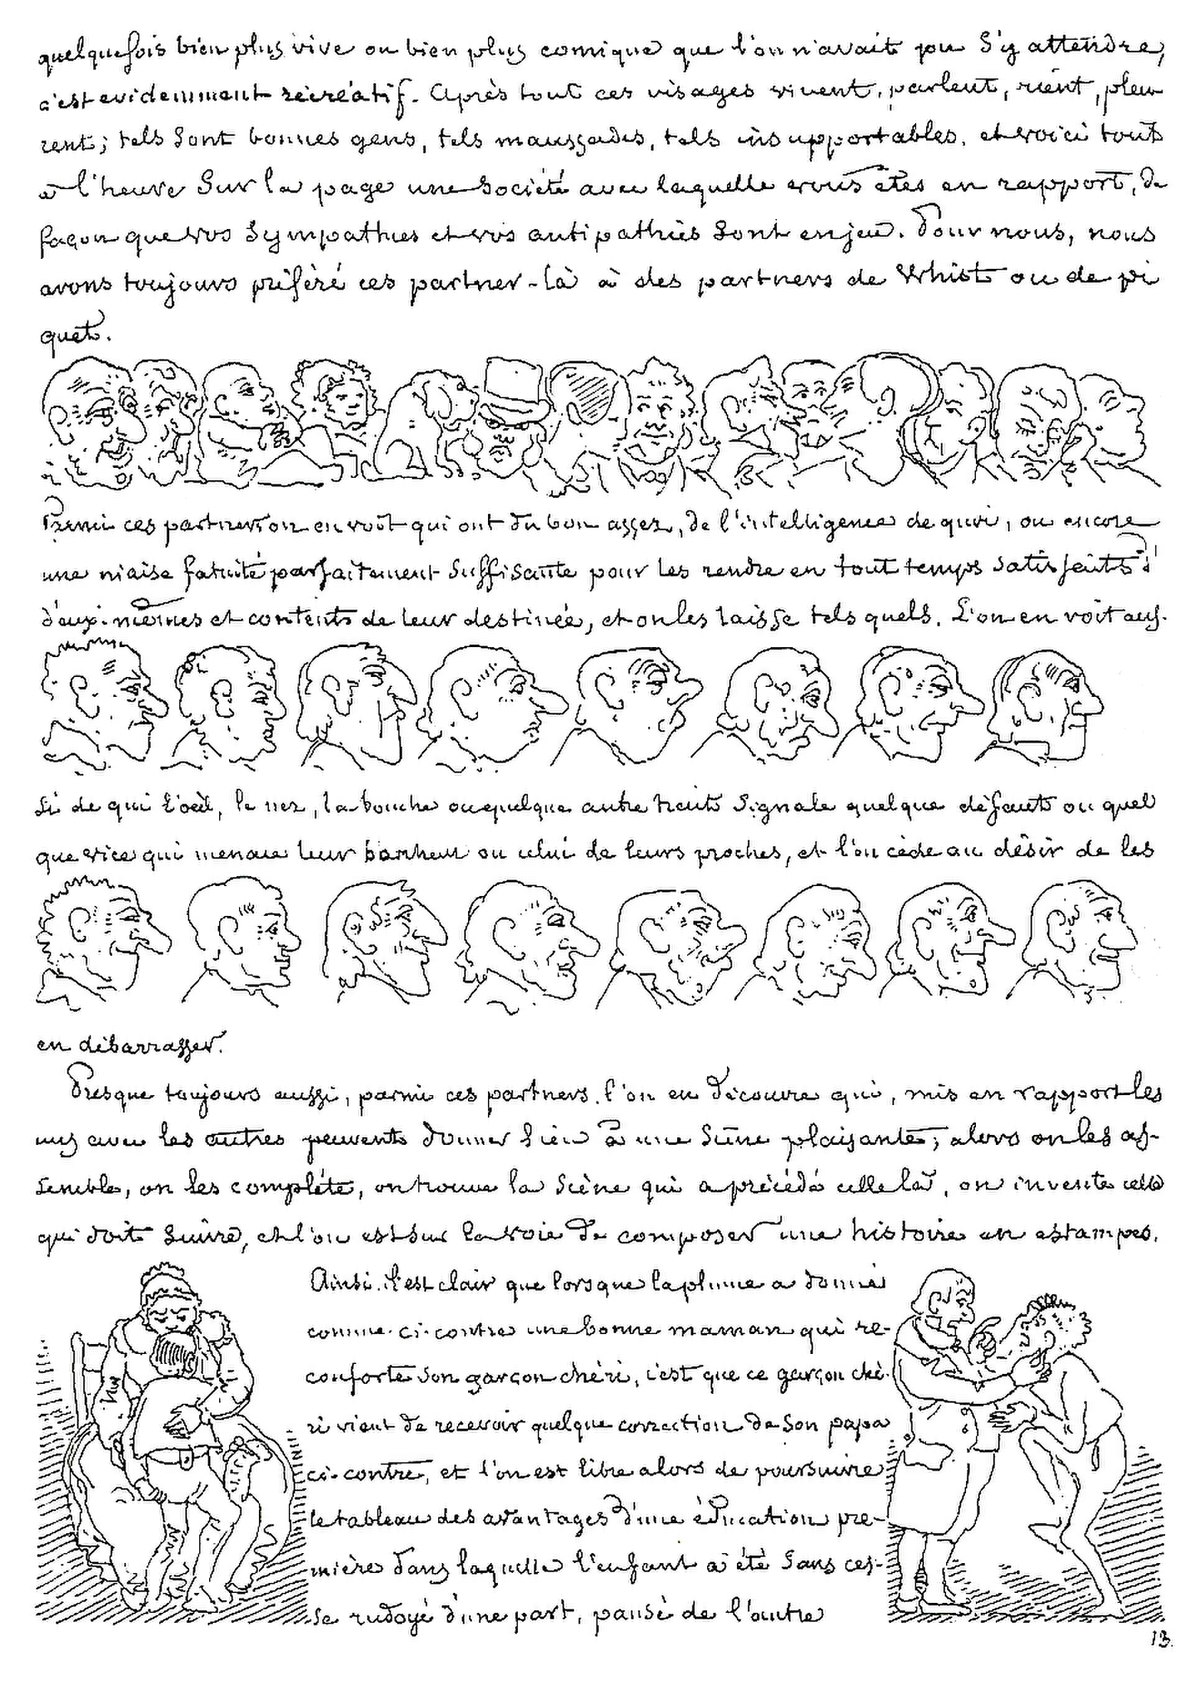 quelquefois bien plus vive ou bien plus comique que l'on n'avait pu s'y attendre,
c'est evidemment récréatif. Après tout ces visages vivent, parlent, rient, pleu
rent; tels sont bonnes gens, tels maussades, tels insupportables. et voici tout
à l'heure sur la page une société avec laquelle vous êtes en rapport, de
façon que vos sympathies et vos antipathies sont en jeu. Pour nous, nous
avons toujours préféré ces partner-là à des partners de Whist ou de pi
quet.
Parmi ces partners on en voit qui ont du bon assez, de l'intelligence de quoi, ou encore
une niaise fatuité parfaitement suffisante pour les rendre en tout temps satisfaits d'
d'eux-mêmes et contents de leur destinée, et on les laisse tels quels. L'on en voit aus-
si de qui l'oeil, le nez, la bouche ou quelque autre trait signale quelque défaut ou quel
que vice qui menace leur bonheur ou celui de leurs proches, et l'on cède au désir de les
en débarrasser.
Presque toujours aussi, parmi ces partners, l'on en découvre qui, mis en rapport les
uns avec les autres peuvent donner lieu à une scène plaisante; alors on les as-
semble, on les complète, on trouve la scène qui a précédé celle là, on invente celle
qui doit suivre, et l'on est sur la voie de composer une histoire en estampes.
Ainsi il est clair que lorsque la plume a donné
comme ci-contre une bonne maman qui ré-
conforte son garçon chéri, c'est que ce garçon ché-
ri vient de recevoir quelque correction de son papa
ci-contre, et l'on est libre alors de poursuivre
le tableau des avantages d'une éducation pre-
mière dans laquelle l'enfant a été sans ces-
se rudoyé d'une part, pansé de l'autre
13.